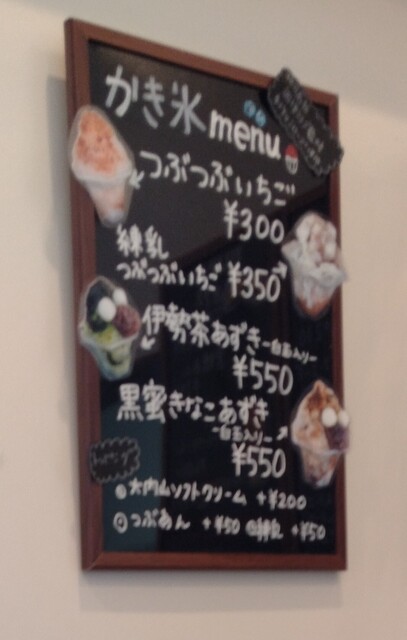 かき氷 menu
つぶつぶいちご
¥300
練乳
つぶつぶいちご ¥350
伊勢茶あずき
¥550
黒蜜きなこあずき
¥550
大内山ソフトクリーム +¥200
つぶあん +¥50 練乳 +¥50